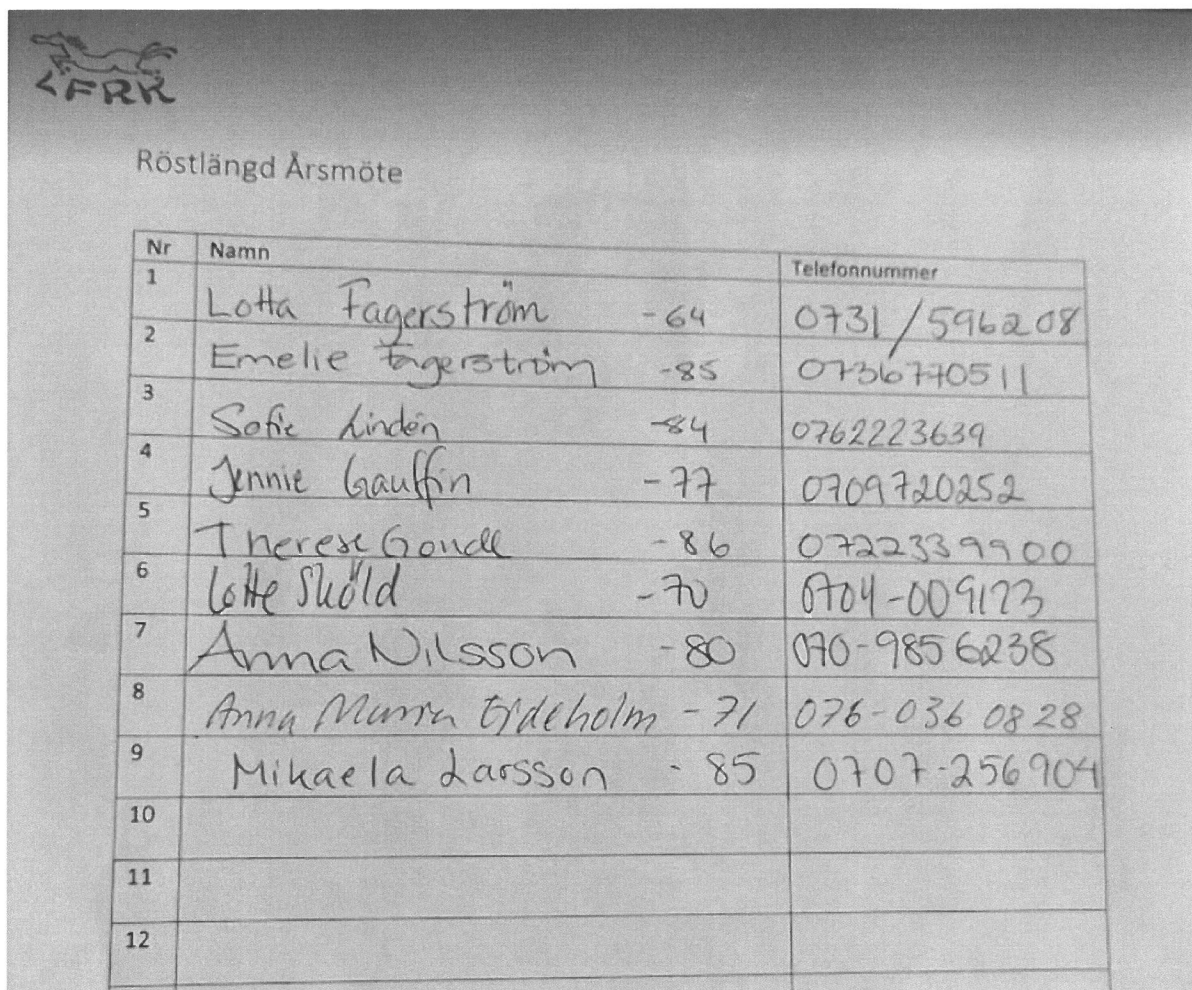 LFRK
Röstlängd Årsmöte
Nr Namn Telefonnummer
1 Lotta Fagerström -64 0731/596208
2 Emelie Fagerström -85 0736770511
3 Sofie Lindén -84 0762223639
4 Jennie Gauffin -77 0709720252
5 Therese -86 0722339900
6 Lotte Sköld -70 0704-009123
7 Anna Nilsson -80 070-9856238
8 Anna -71 076-036 0828
9 Mikaela Larsson - 85 0707-256904
10
11
12